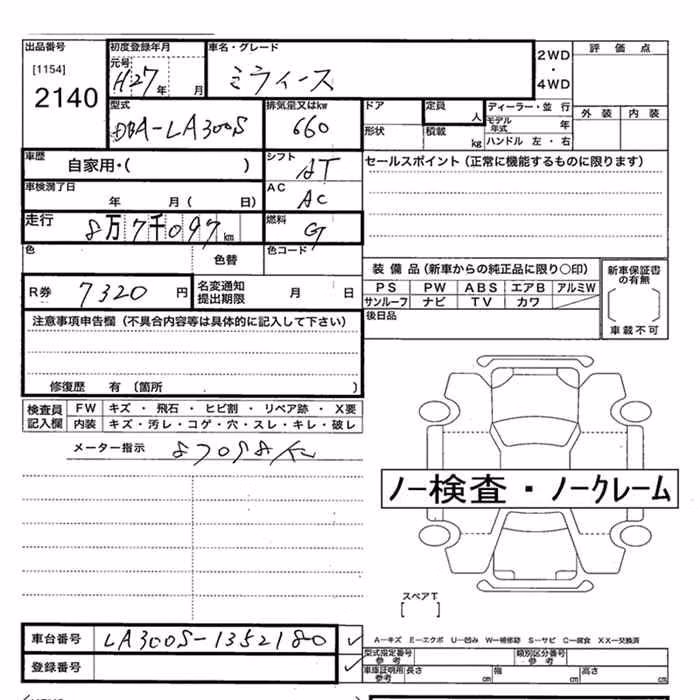 出品番号 初度登録年月 車名・グレード 評 価 点
[1154] 元号 2WD
2140 H27 年 月 ミライース ・
4WD
型式 排気量又はkw ドア 定員 人 ディーラー・並 行 外 装 内 装
DBA-LA300S 660 形状 積載 kg モデル年式 年
ハンドル 左 ・ 右
車歴 自家用・( ) シフト AT セールスポイント (正常に機能するものに限ります)
車検満了日 年 月( 日) AC AC
走行 8万7千097 km 燃料 G
色 色替 色コード
装 備 品 (新車からの純正品に限り○印) 新車保証書の有無
R券 7320 円 名変通知提出期限 月 日 PS PW ABS エアB アルミW
サンルーフ ナビ TV カワ
注意事項申告欄 (不具合内容等は具体的に記入して下さい) 後日品 車載不可
修復歴 有 (箇所 )
検査員記入欄 FW キズ ・ 飛石 ・ ヒビ割 ・ リペア跡 ・ X要
内装 キズ・汚レ・コゲ・穴・スレ・キレ・破レ
メーター指示
ノー検査・ノークレーム
スペアT
[ ]
車台番号 LA300S-1352180 A—キズ E—エクボ U—凹み W—補修跡 S—サビ C—腐食 XX—交換済
登録番号 型式指定番号 参考 類別区分番号 参考
車庫証明用 参考 長さ cm 幅 cm 高さ cm